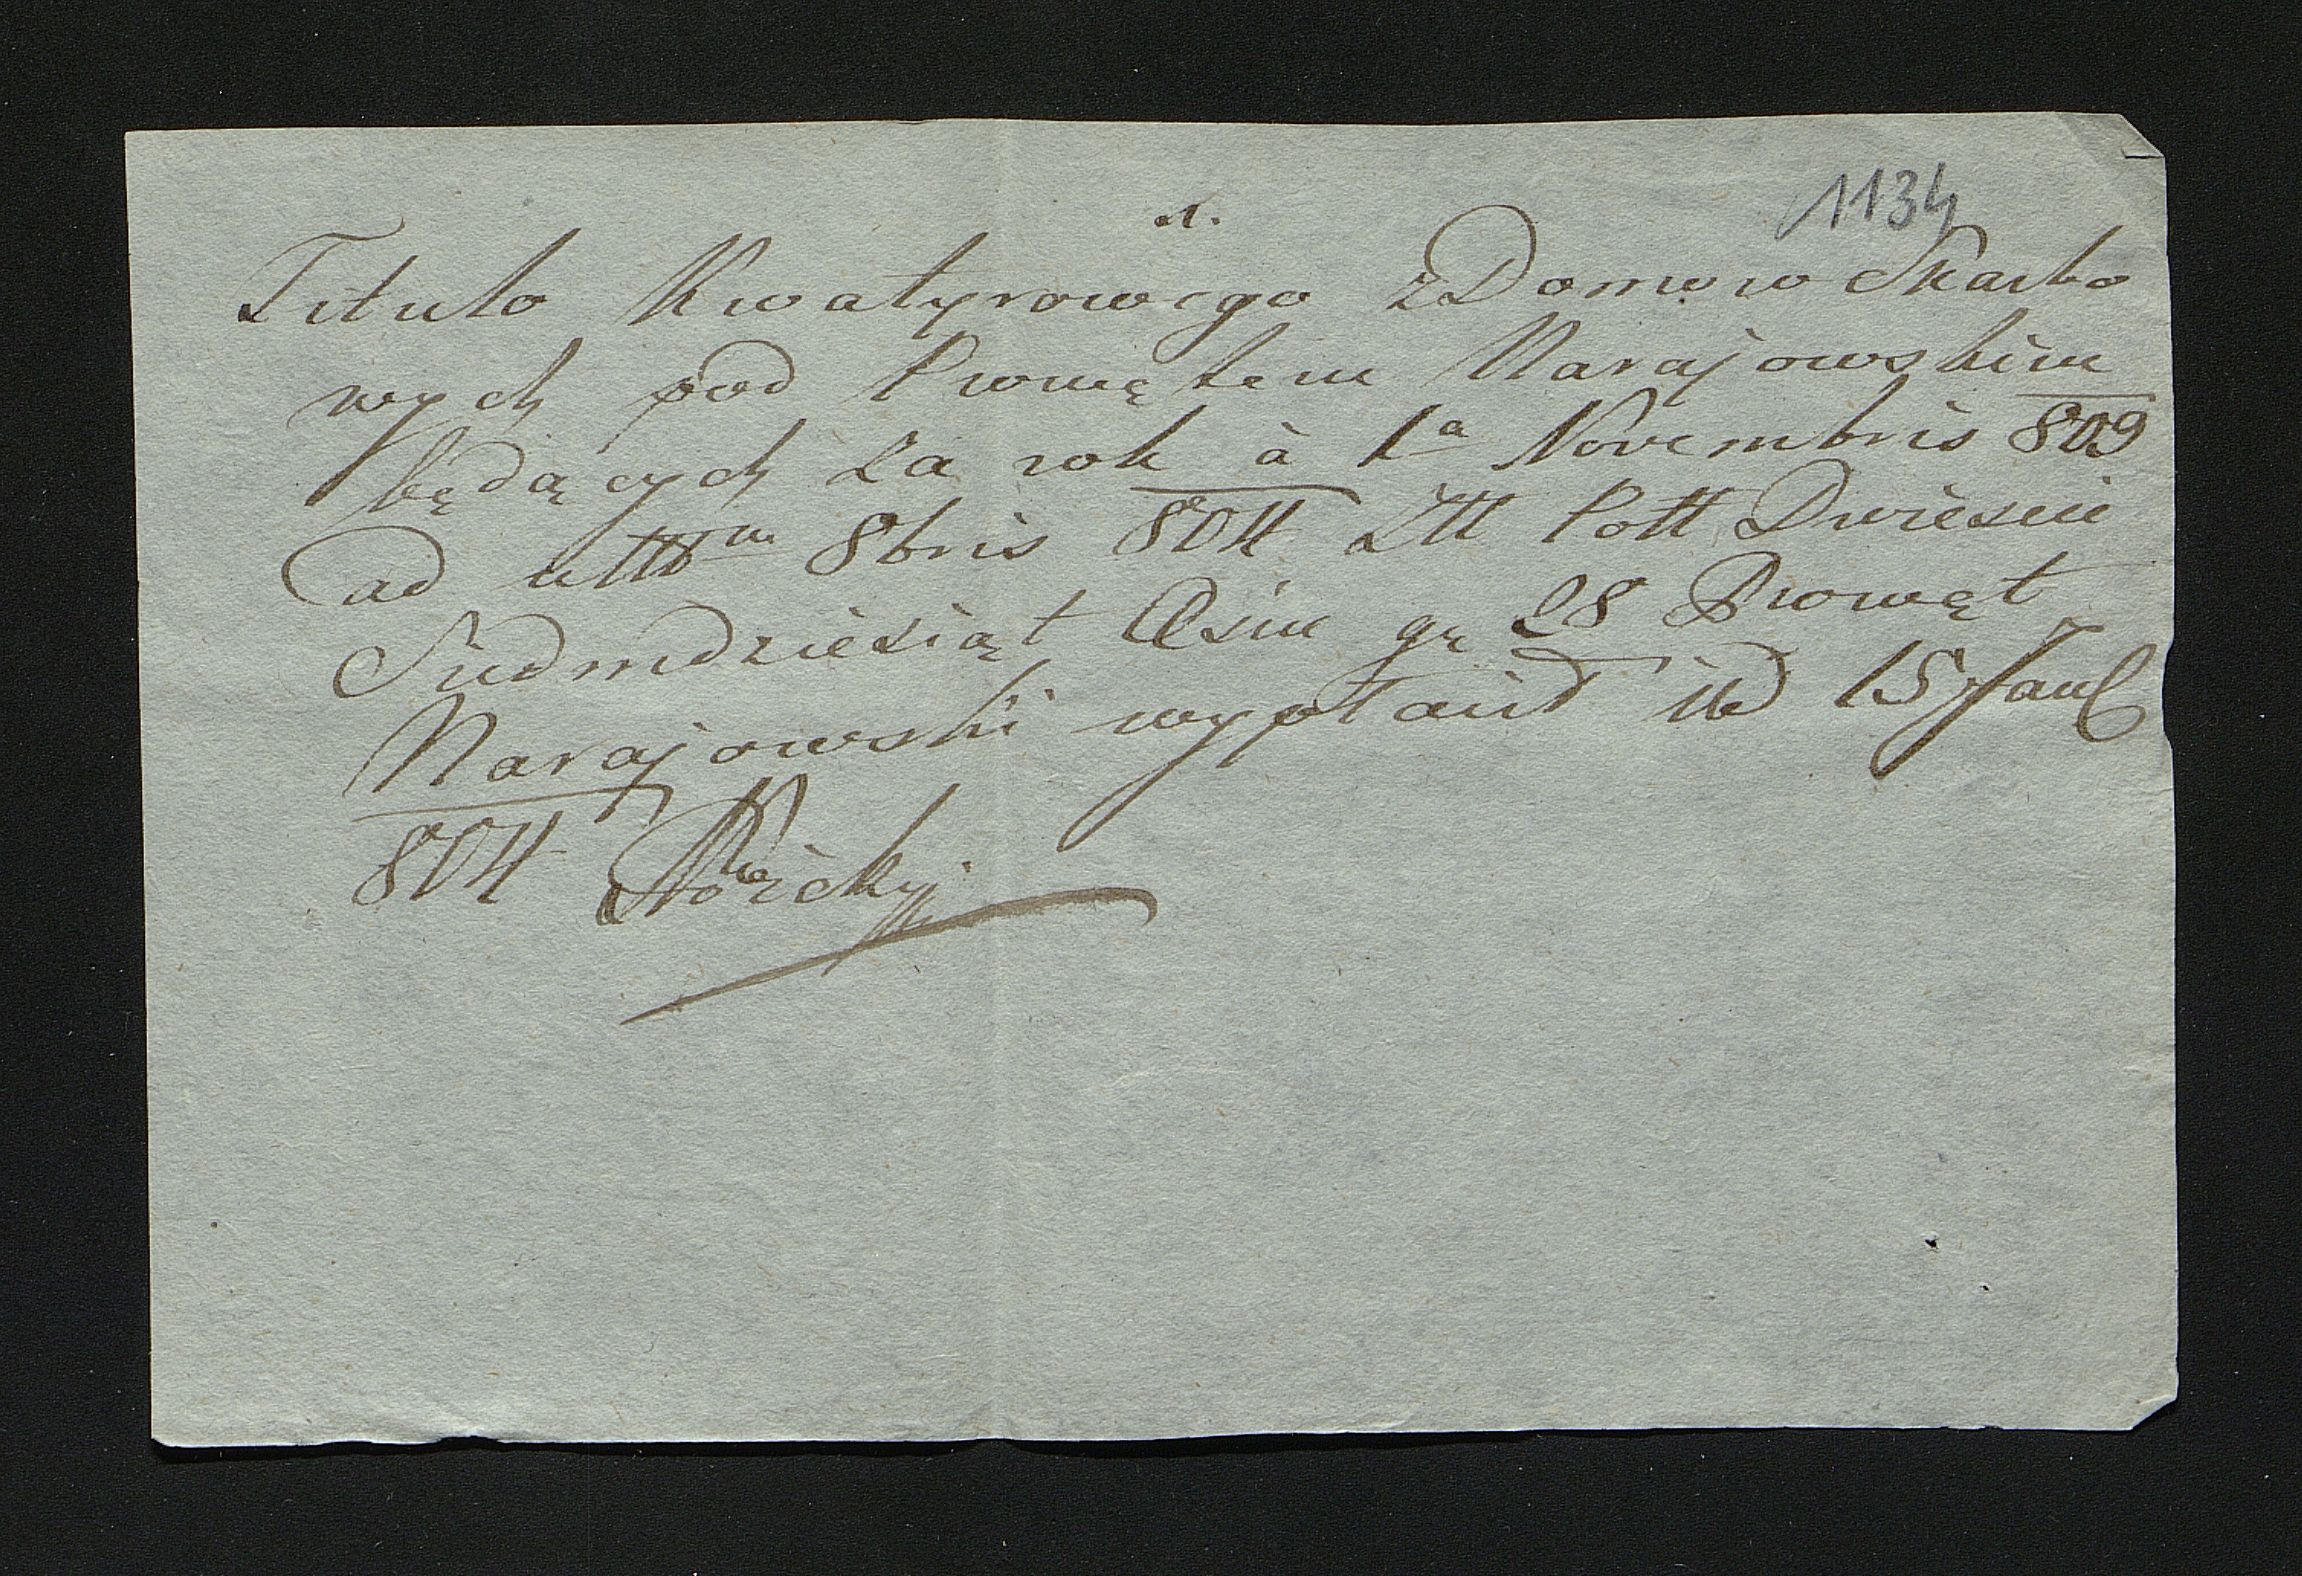 1134
Titulo Kwatyrowego z Domow Skarbo
wych pod Prowętem Narajowskim
będących za rok à 1a Novembris 803
ad ulttm 8bris 804 Ztt Pott Dwiescie
Siedmdziesiąt Osm gr 28 Prowęt
Narajowski wypłacił dd 15 Janl
804